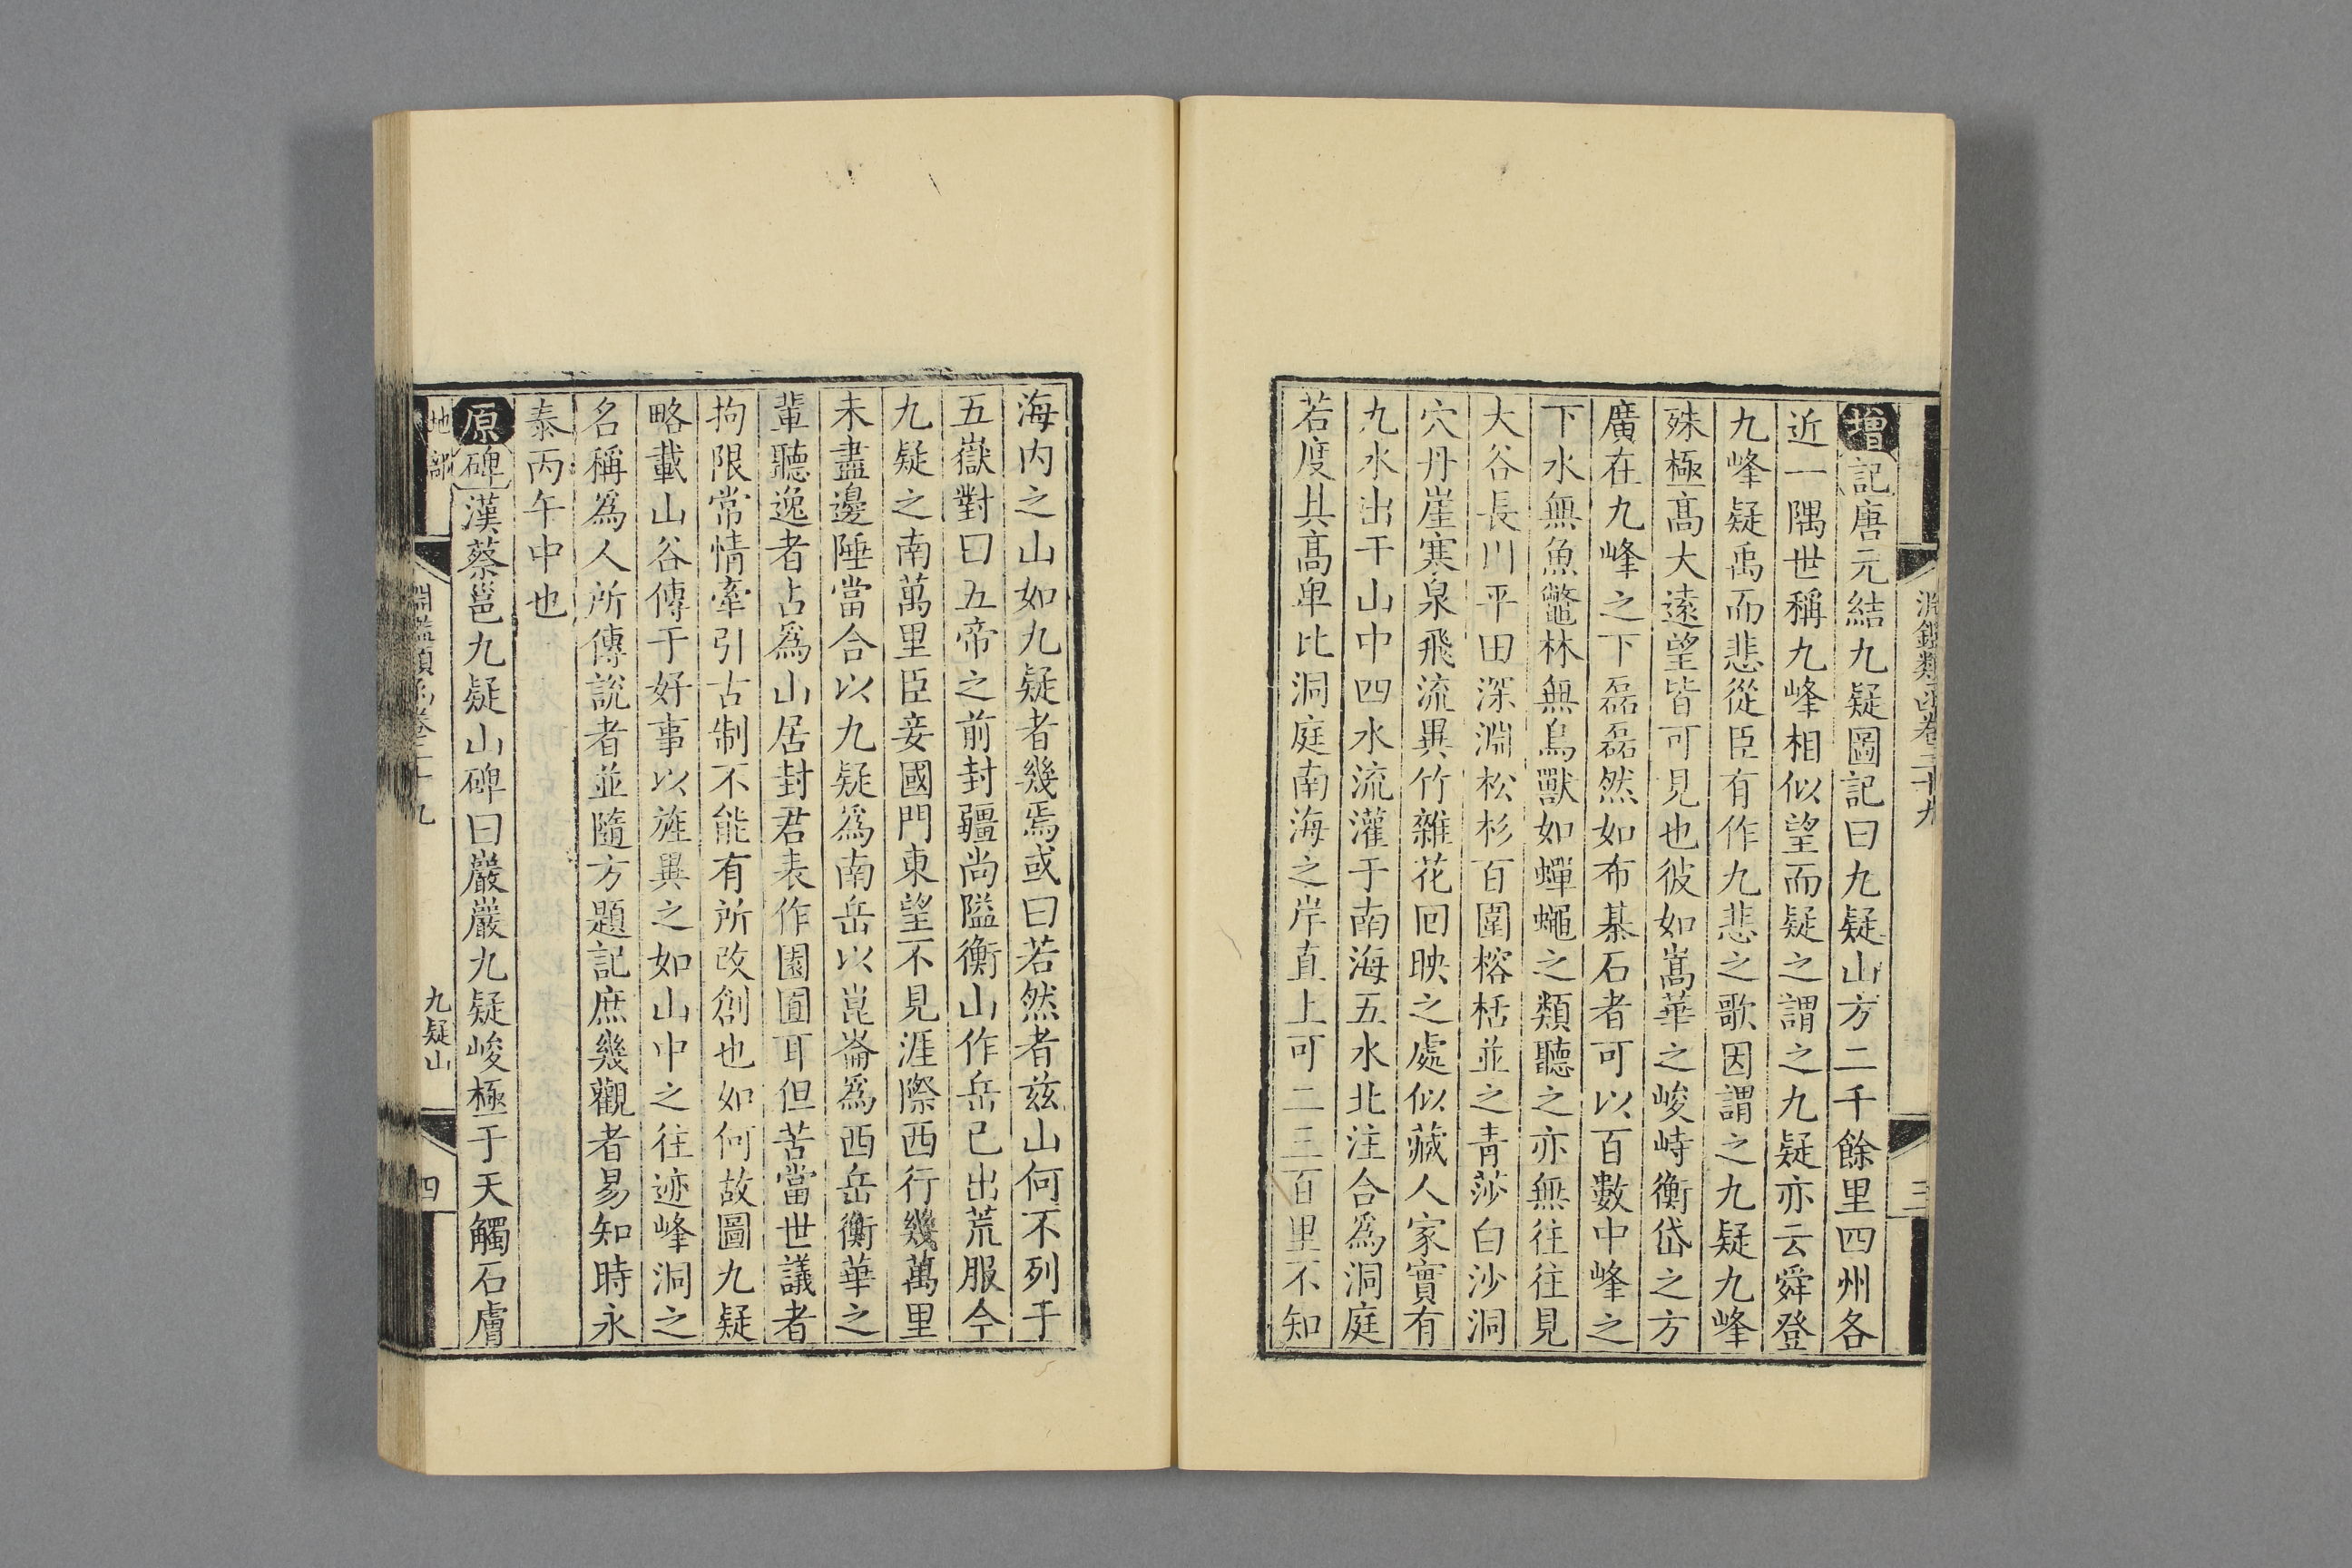 淵鑑類函卷二十九
三
增記唐元結九疑圖記曰九疑山方二千餘里四州各
近一隅世稱九峰相似望而疑之謂之九疑亦云舜登
九峰疑禹而悲從臣有作九悲之歌因謂之九疑九峰
殊極高大遠望皆可見也彼如嵩華之峻峙衡岱之方
廣在九峰之下磊磊然如布碁石者可以百數中峰之
下水無魚鼈林無鳥獸如蟬蠅之類聽之亦無往往見
大谷長川平田深淵松杉百圍榕栝並之青莎白沙洞
穴丹崖寒泉飛流異竹雜花回映之處似藏人家實有
九水出于山中四水流灌于南海五水北注合為洞庭
若度其高卑比洞庭南海之岸直上可二三百里不知
海内之山如九疑者幾焉或曰若然者兹山何不列于
五嶽對曰五帝之前封疆尚隘衡山作岳已出荒服今
九疑之南萬里臣妾國門東望不見涯際西行幾萬里
未盡邊陲當合以九疑為南岳以崑崙為西岳衡華之
輩聽逸者占為山居封君表作園囿耳但苦當世議者
拘限常情牽引古制不能有所改創也如何故圖九疑
略載山谷傳于好事以旌異之如山中之往迹峰洞之
名稱為人所傳說者並隨方題記庶幾觀者易知時永
泰丙午中也
原碑漢蔡邕九疑山碑曰巖巖九疑峻極于天觸石膚
地部
淵鑑類函卷二十九
九疑山
四